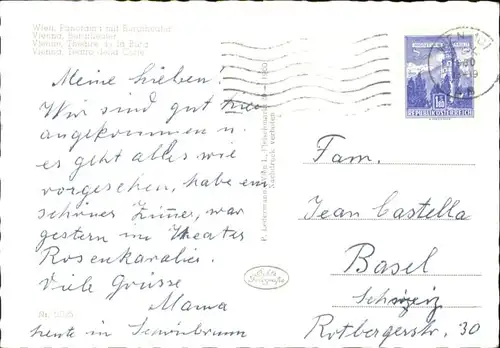 Wien, Panorama mit Burgtheater
Vienna, Burgtheater
Vienne, Théâtre de la Burg
Vienna, Teatro della Corte
Meine Lieben!
Wir sind gut hier
angekommen u.
es geht alles wie
vorgesehen, habe ein
schönes Zimmer, war
gestern im Theater
Rosenkavalier.
Viele Grüsse
Mama
heute in Schönbrunn
Nachdruck verboten
REPUBLIK ÖSTERREICH
Fam.
Jean Castella
Basel
Schweiz
Rotbergerstr. 30